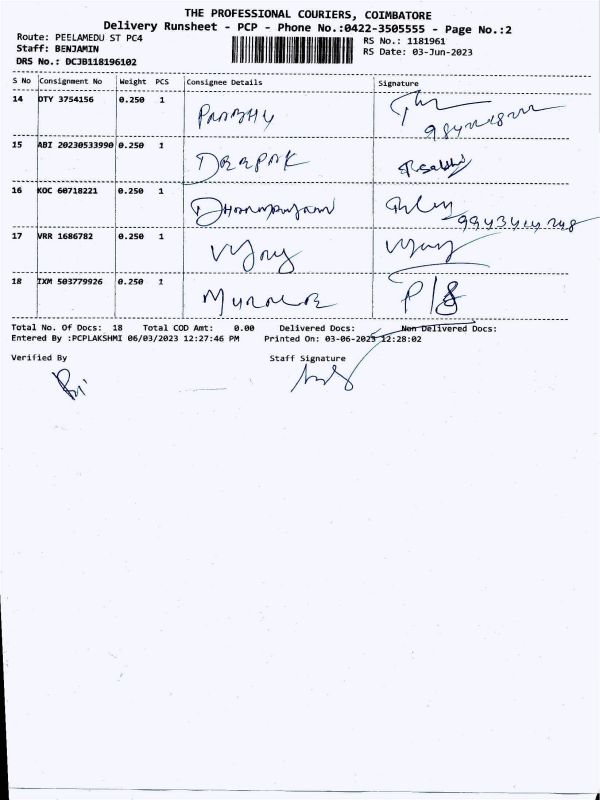 THE PROFESSIONAL COURIERS, COIMBATORE
Delivery Runsheet - PCP - Phone No.:0422-3505555 - Page No.:2
Route: PEELAMEDU ST PC4 RS No.: 1181961
Staff: BENJAMIN RS Date: 03-Jun-2023
DRS No.: DCJB118196102
S No Consignment No Weight PCS Consignee Details Signature
14 DTY 3754156 0.250 1 PRABHU
15 ABI 20230533990 0.250 1 DEEPAK
16 KOC 60718221 0.250 1
17 VRR 1686782 0.250 1 Vijay Vijay
18 IXM 503779926 0.250 1
Total No. Of Docs: 18 Total COD Amt: 0.00 Delivered Docs: Non Delivered Docs:
Entered By :PCPLAKSHMI 06/03/2023 12:27:46 PM Printed On: 03-06-2023 12:28:02
Verified By Staff Signature